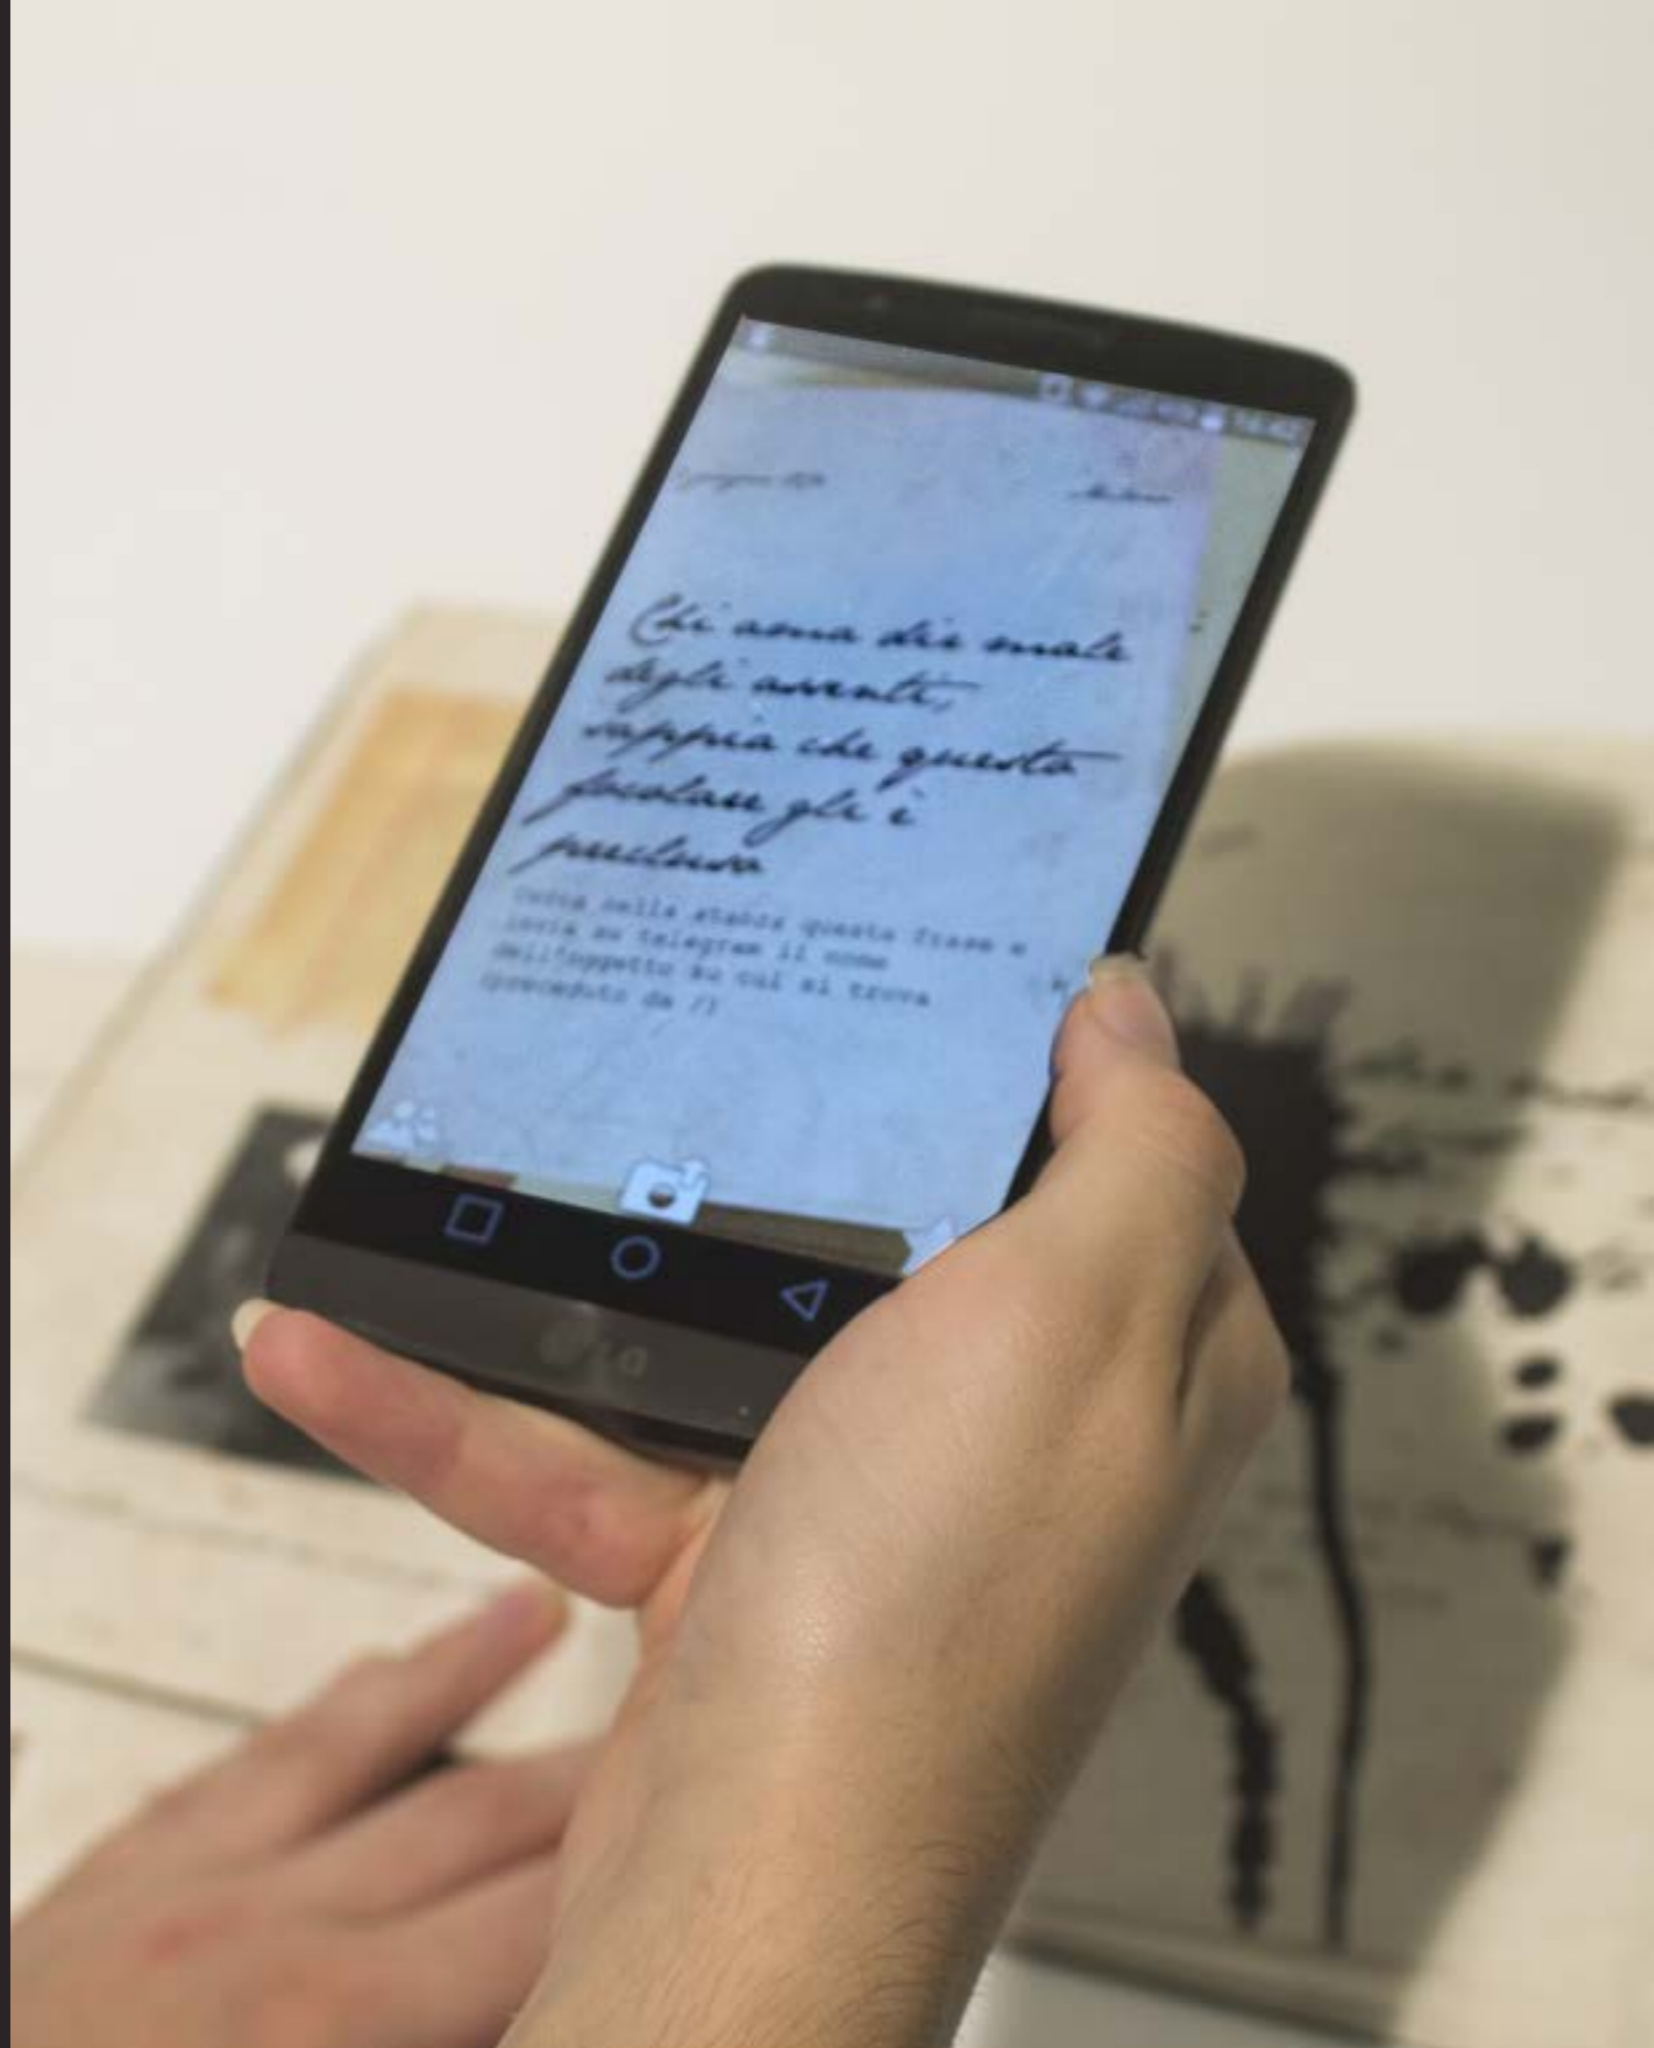 Chi ama dir male
degli assenti,
sappia che questo
focolare gli è
precluso
Cerca nella stanza questa frase e
invia su telegram il nome
dell'oggetto su cui si trova
(preceduto da /)
LG